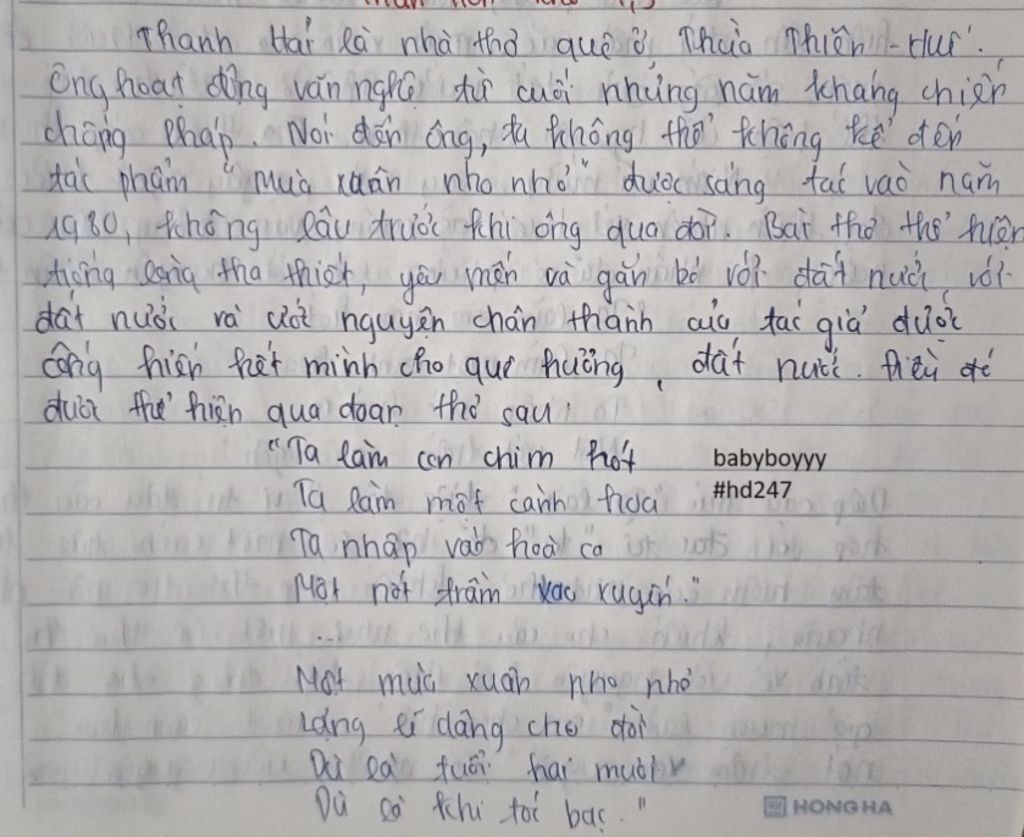 Thanh Hải là nhà thơ quê ở Thừa Thiên - Huế.
Ông hoạt động văn nghệ từ cuối những năm kháng chiến
chống Pháp. Nói đến ông, ta không thể không kể đến
tác phẩm "Mùa xuân nho nhỏ" được sáng tác vào năm
1980, không lâu trước khi ông qua đời. Bài thơ thể hiện
tiếng lòng tha thiết, yêu mến và gắn bó với đất nước, với
đất nước và ước nguyện chân thành của tác giả được
cống hiến hết mình cho quê hương, đất nước. Điều đó
được thể hiện qua đoạn thơ sau:
"Ta làm con chim hót
babyboyyy
Ta làm một cành hoa
#hd247
Ta nhập vào hoà ca
Một nốt trầm xao xuyến."
...
Một mùa xuân nho nhỏ
Lặng lẽ dâng cho đời
Dù là tuổi hai mươi
Dù là khi tóc bạc."
HONG HA